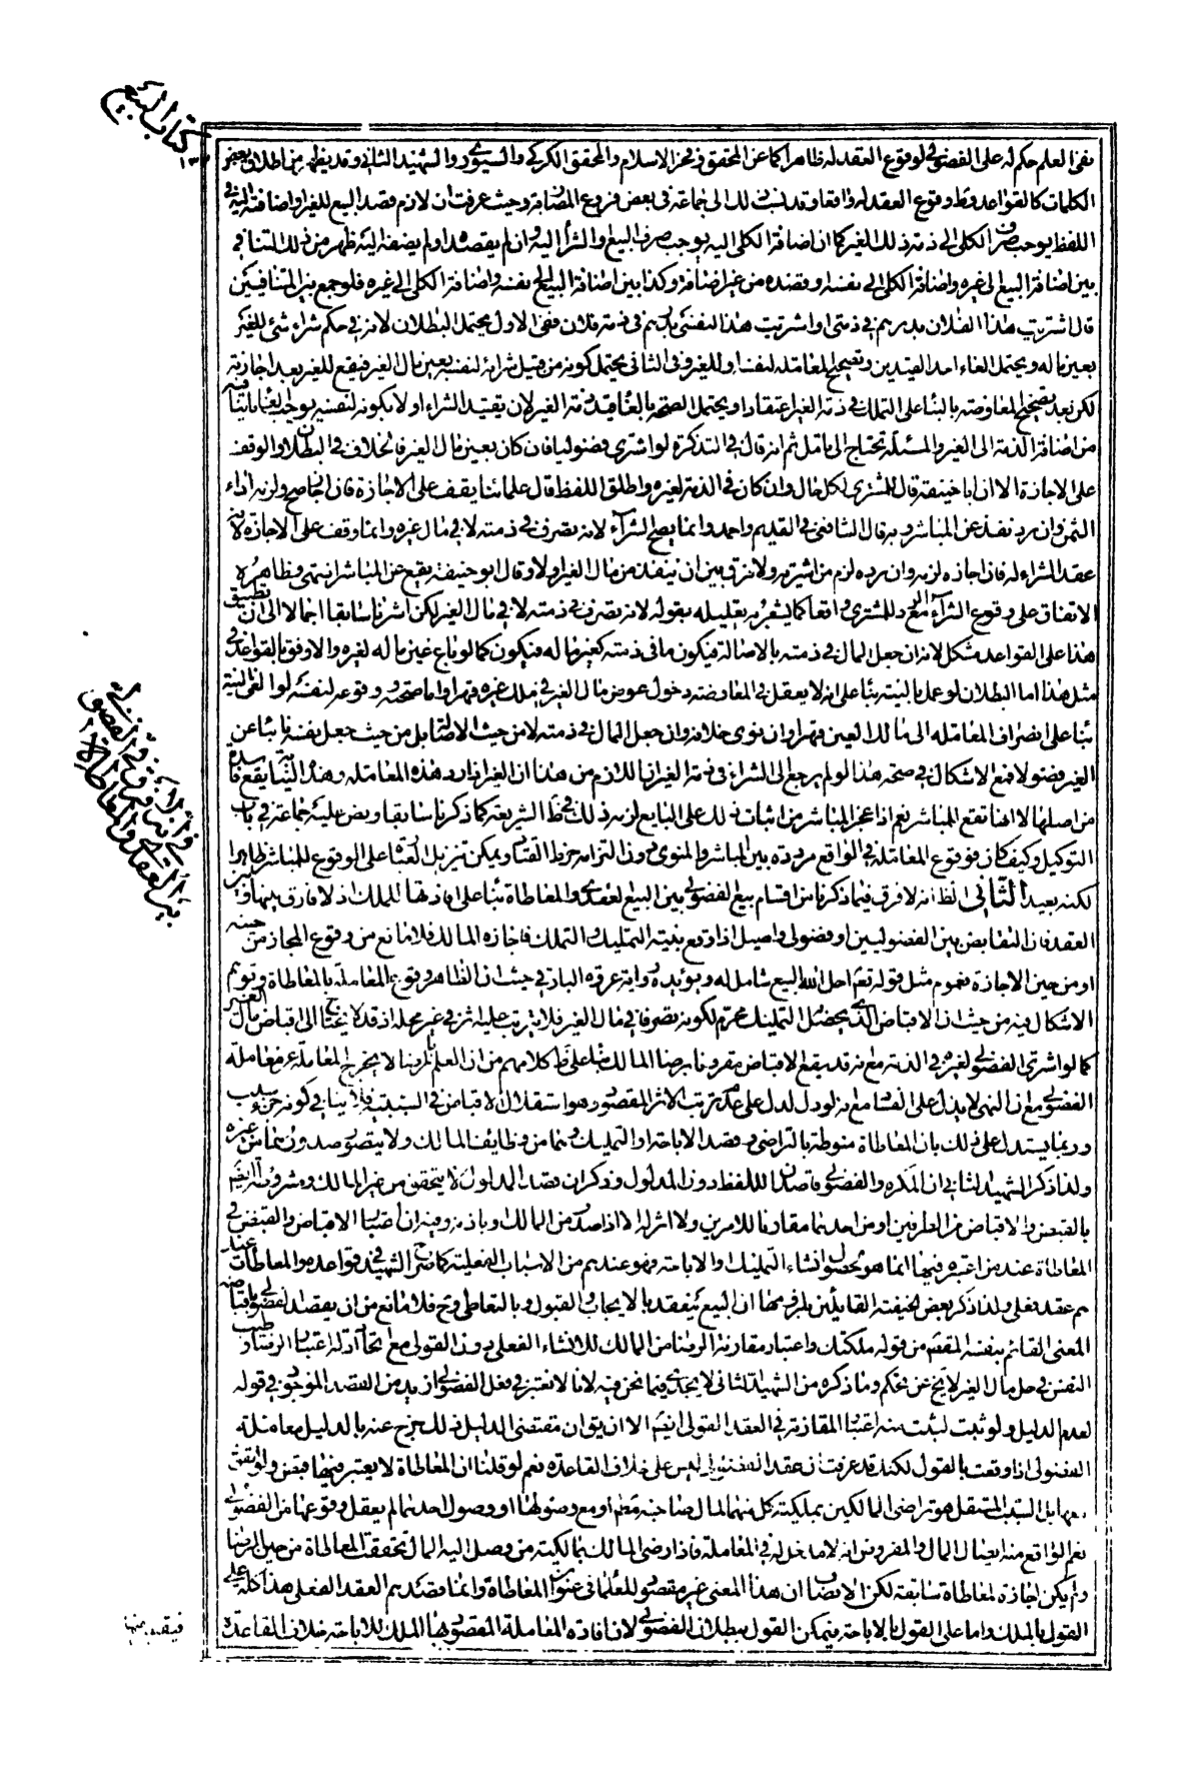 كتاب البيع
ففى العلم حكم له على الفضولى لوقوع العقد له ظاهرا كما عن المحقق وفخر الاسلام والمحقق الكركى والسيورى والشهيد الثانى وقد يظهر من اطلاق بعض
الكلمات كالقواعد وط وقوع العقد له واقعا وقد نسب ذلك الى جماعة فى بعض فروع المضاربة وحيث عرفت ان لازم قصد البيع للغير او اضافته اليه فى
اللفظ يوجب صرف الكلى الى ذمة ذلك الغير كما ان اضافة الكلى اليه يوجب صرف البيع والشراء اليه وان لم يقصده او لم يضفه اليه ظهر من ذلك التنافى
بين اضافة البيع الى غيره واضافة الكلى الى نفسه او قصده من غير اضافة وكذا بين اضافة البيع الى نفسه واضافة الكلى الى غيره فلو جمع بين المتنافيين
قال اشتريت هذا لفلان بدرهم فى ذمتى او اشتريت هذا لنفسى بدرهم فى ذمة فلان ففى الاول يحتمل البطلان لانه فى حكم شراء شئ للغير
بعين ماله ويحتمل الغاء احد القيدين وتصحيح المعاملة لنفسه او للغير وفى الثانى يحتمل كونه من قبيل شرائه لنفسه بعين مال الغير فيقع للغير بعد اجازته
لكن بعد تصحيح المعاوضة بالبناء على التملك فى ذمة الغير اعتقادا ويحتمل الصحة بالغاء قيد ذمة الغير لان تقييد الشراء اولا بكونه لنفسه يوجب الغاء ما ينافيه
من اضافة الذمة الى الغير والمسئلة تحتاج الى تامل ثم انه قال فى التذكرة لو اشترى فضوليا فان كان بعين مال الغير فالخلاف فى البطلان والوقف
على الاجازة الا ان ابا حنيفة قال للمشترى بكل حال وان كان فى الذمة لغيره واطلق اللفظ قال علمائنا يقف على الاجازة فان اجاز صح ولزمه اداء
الثمن وان رد نفذ عن المباشر وبه قال الشافعى فى القديم واحمد وانما يصح الشراء لانه تصرف فى ذمته لا فى مال غيره وانما وقف على الاجازة لانه
عقد الشراء له فان اجازه لزمه وان رده لزم من اشتراه ولا فرق بين ان ينقد من مال الغير او لا وقال ابو حنيفة يقع عن المباشر انتهى وظاهره
الاتفاق على وقوع الشراء مع الرد للمشترى واقعا كما يشعر به تعليله بقوله لانه تصرف فى ذمته لا فى مال الغير لكن اشرنا سابقا اجمالا الى ان تطبيق
هذا على القواعد مشكل لانه ان جعل المال فى ذمته بالاصالة فيكون ما فى ذمته كعين ماله فيكون كما لو باع عين ماله لغيره والاوفق بالقواعد فى
مثل هذا اما البطلان لو عمل بالنية بناء على انه لا يعقل فى المعاوضة دخول عوض مال الغير فى ملك غيره قهرا واما صحته ووقوعه لنفسه لو الغى النية
بناء على انصراف المعاملة الى مالك العين قهرا وان نوى خلافه وان جعل المال فى ذمته لا من حيث الاصالة بل من حيث جعل نفسه نائبا عن
الغير فضولا فمع الاشكال فى صحة هذا لو لم يرجع الى الشراء فى ذمة الغير ان اللازم من هذا ان الغير اذا رد هذه المعاملة وهذه النيابة يقع فاسدة
من اصلها لا انها تقع للمباشر نعم اذا عجز المباشر من اثبات ذلك على البايع لزمه ذلك فى ظ الشريعة كما ذكرنا سابقا ونص عليه جماعة فى باب
التوكيل وكيف كان فوقوع المعاملة فى الواقع مرددة بين المباشر والمنوى دونه التزامه خرط القتاد ويمكن تنزيل العبارة على الوقوع للمباشر ظاهرا
لكنه بعيد الثانى الظ انه لا فرق فيما ذكرنا من اقسام بيع الفضولى بين البيع العقدى والمعاطاة بناء على افادتها للملك اذ لا فارق بينها وبين
العقد فان التقابض بين الفضوليين او فضولى واصيل اذا وقع بنية التمليك والتملك فاجازه المالك فلا مانع من وقوع المجاز من حينه
او من حين الاجازة فعموم مثل قوله تع احل الله البيع شامل له ويؤيده رواية عروة البارقى حيث ان الظاهر وقوع المعاملة بالمعاطاة وتوهم
الاشكال فيه من حيث ان الاقباض الذى يحصل به التمليك محرم لكونه تصرفا فى مال الغير فلا يترتب عليه اثر فى غير محله اذ قد لا يحتاج الى اقباض مال الغير
كما لو اشترى الفضولى لغيره فى الذمة مع انه قد يقع الاقباض مقرونا برضا المالك بناء على ظ كلامهم من ان العلم بالرضا لا يخرج المعاملة عن معاملة
الفضولى مع ان النهى لا يدل على الفساد مع انه لو دل لدل على عدم ترتب الاثر المقصود وهو استقلال الاقباض فى السببية فلا ينافى كونه جزء سبب
وربما يستدل على ذلك بان المعاطاة منوطة بالتراضى وقصد الاباحة او التمليك وهما من وظايف المالك ولا يتصور صدورهما من غيره
ولذا ذكر الشهيد الثانى ان المكره والفضولى قاصدان للفظ دون المدلول وذكر ان قصد المدلول لا يتحقق من غير المالك ومشروطة ايضا
بالقبض والاقباض من الطرفين او من احدهما مقارنا للامرين ولا اثر له الا اذا صدر من المالك او باذنه وفيه ان اعتبار الاقباض والقبض فى
المعاطاة عند من اعتبره فيها انما هو لحصول انشاء التمليك او الاباحة فهو عندهم من الاسباب الفعلية كما صرح الشهيد فى قواعده والمعاطاة عند
هم عقد فعلى ولذا ذكر بعض الحنفية القائلين بلزومها ان البيع ينعقد بالايجاب والقبول وبالتعاطى وح فلا مانع من ان يقصد الفضولى باقباضه
المعنى القائم بنفسه المقصود من قوله ملكتك واعتبار مقارنة الرضا من المالك للانشاء الفعلى دون القولى مع اتحاد ادلة اعتبار الرضا وطيب
النفس فى حل مال الغير لا يخ عن تحكم وما ذكره من الشهيد الثانى لا يجدى فيما نحن فيه لانا لا نعتبر فى فعل الفضولى ازيد من القصد الموجود فى قوله
لعدم الدليل ولو ثبت لثبت منه اعتبار المقارنة فى العقد القولى ايضا الا ان يق ان مقتضى الدليل ذلك خرج عنه بالدليل معاملة
الفضولى اذا وقعت بالقول لكنك قد عرفت ان عقد الفضولى ليس على خلاف القاعدة نعم لو قلنا ان المعاطاة لا يعتبر فيها قبض ولو اتفق
معها بل السبب المستقل هو تراضى المالكين بملكية كل منهما لمال صاحبه مطلقا او مع وصولهما او وصول احدهما لم يعقل وقوعها من الفضولى
نعم الواقع منه ايصال المال والمفروض انه لا مدخل له فى المعاملة فاذا رضى المالك بمالكية من وصل اليه المال تحققت المعاطاة من حين الرضا
ولم يكن اجازة لمعاطاة سابقة لكن الانصاف ان هذا المعنى غير مقصود للعلماء فى عنوان المعاطاة وانما قصدهم العقد الفعلى هذا كله على
القول بالملك واما على القول بالاباحة فيمكن القول ببطلان الفضولى لان افادة المعاملة المقصود بها الملك للاباحة خلاف القاعدة
فيقتصر فيها